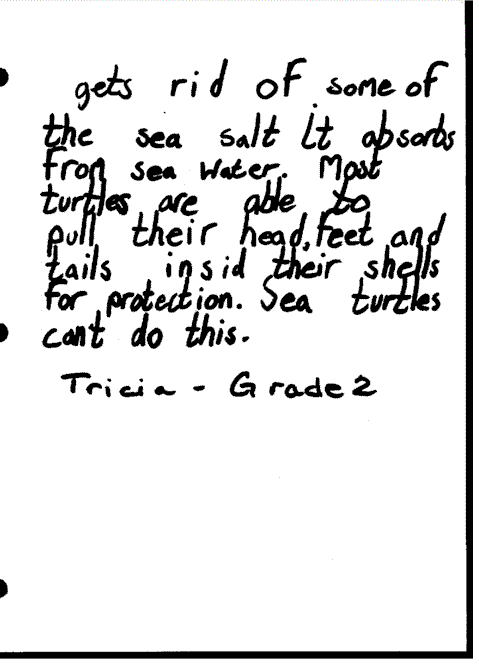 gets rid of some of
the sea salt it absorbs
from sea water. Most
turtles are able to
pull their head, feet and
tails insid their shells
for protection. Sea turtles
can't do this.
Tricia - Grade 2